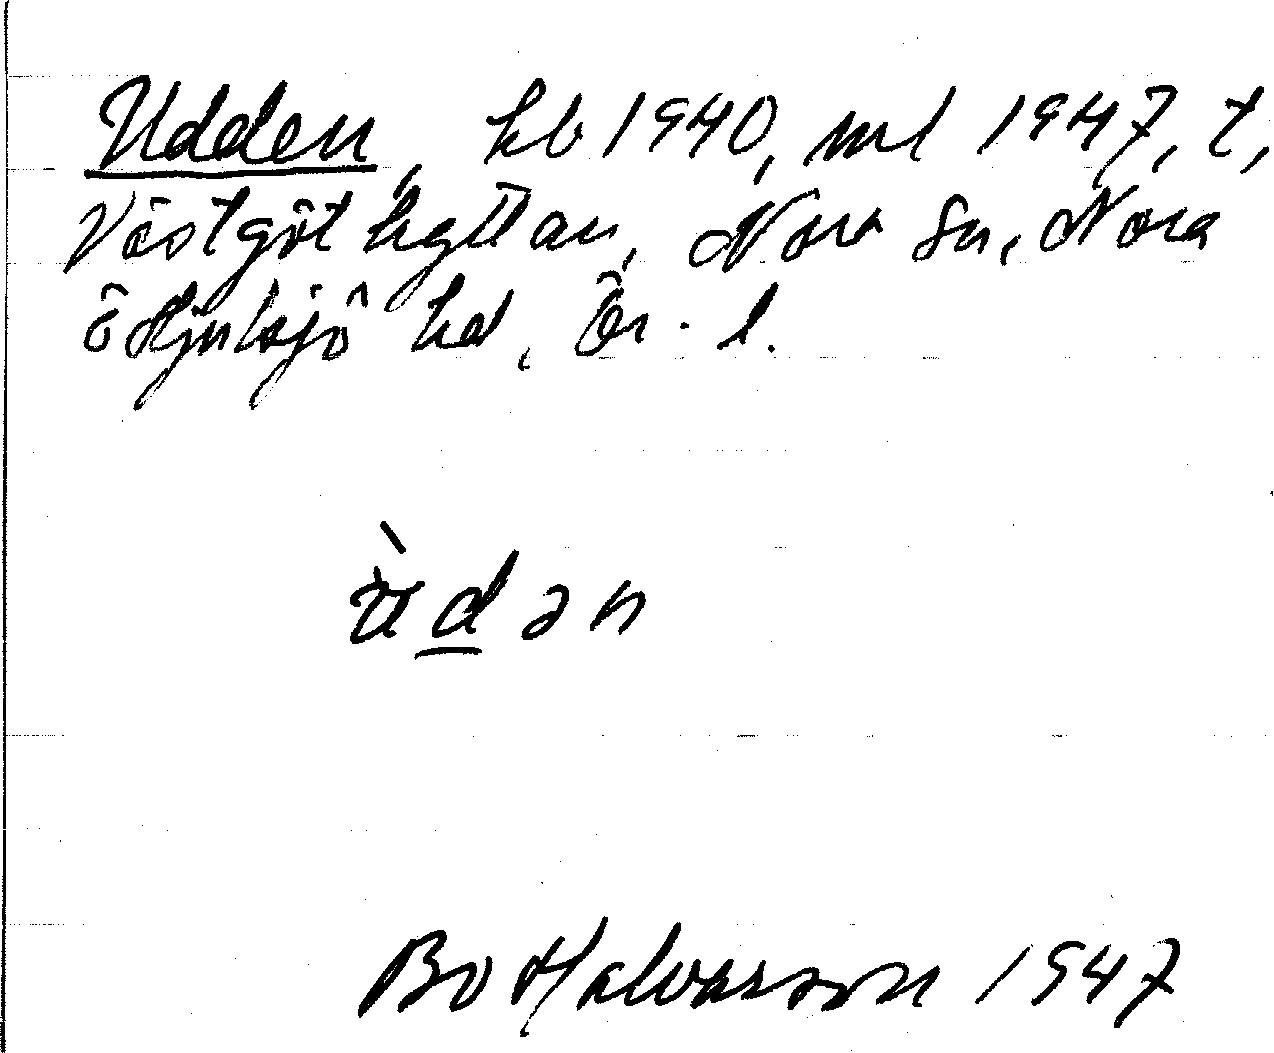 Udden, hb 1940, ml 1947, t,
Västgöthyttan, Nora sn, Nora
o Hjulsjö hd, Ör. l.
ùdən
Bo Halvarsson 1947